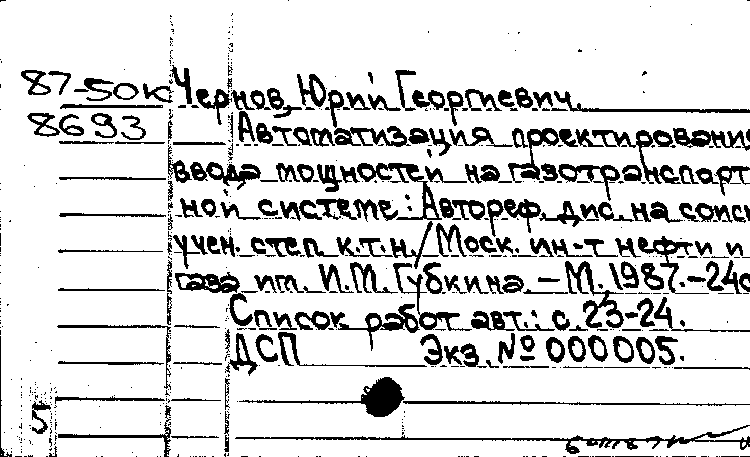 87-50к Чернов, Юрий Георгиевич.
8693 Автоматизация проектирования
ввода мощностей на газотранспорт
ной системе: Автореф. дис. на соиск
учен. степ. к.т.н./Моск. ин-т нефти и
газа им. И.М. Губкина. – М., 1987. – 24с
Список работ авт.: с. 23-24.
ДСП Экз. № 000005.
5